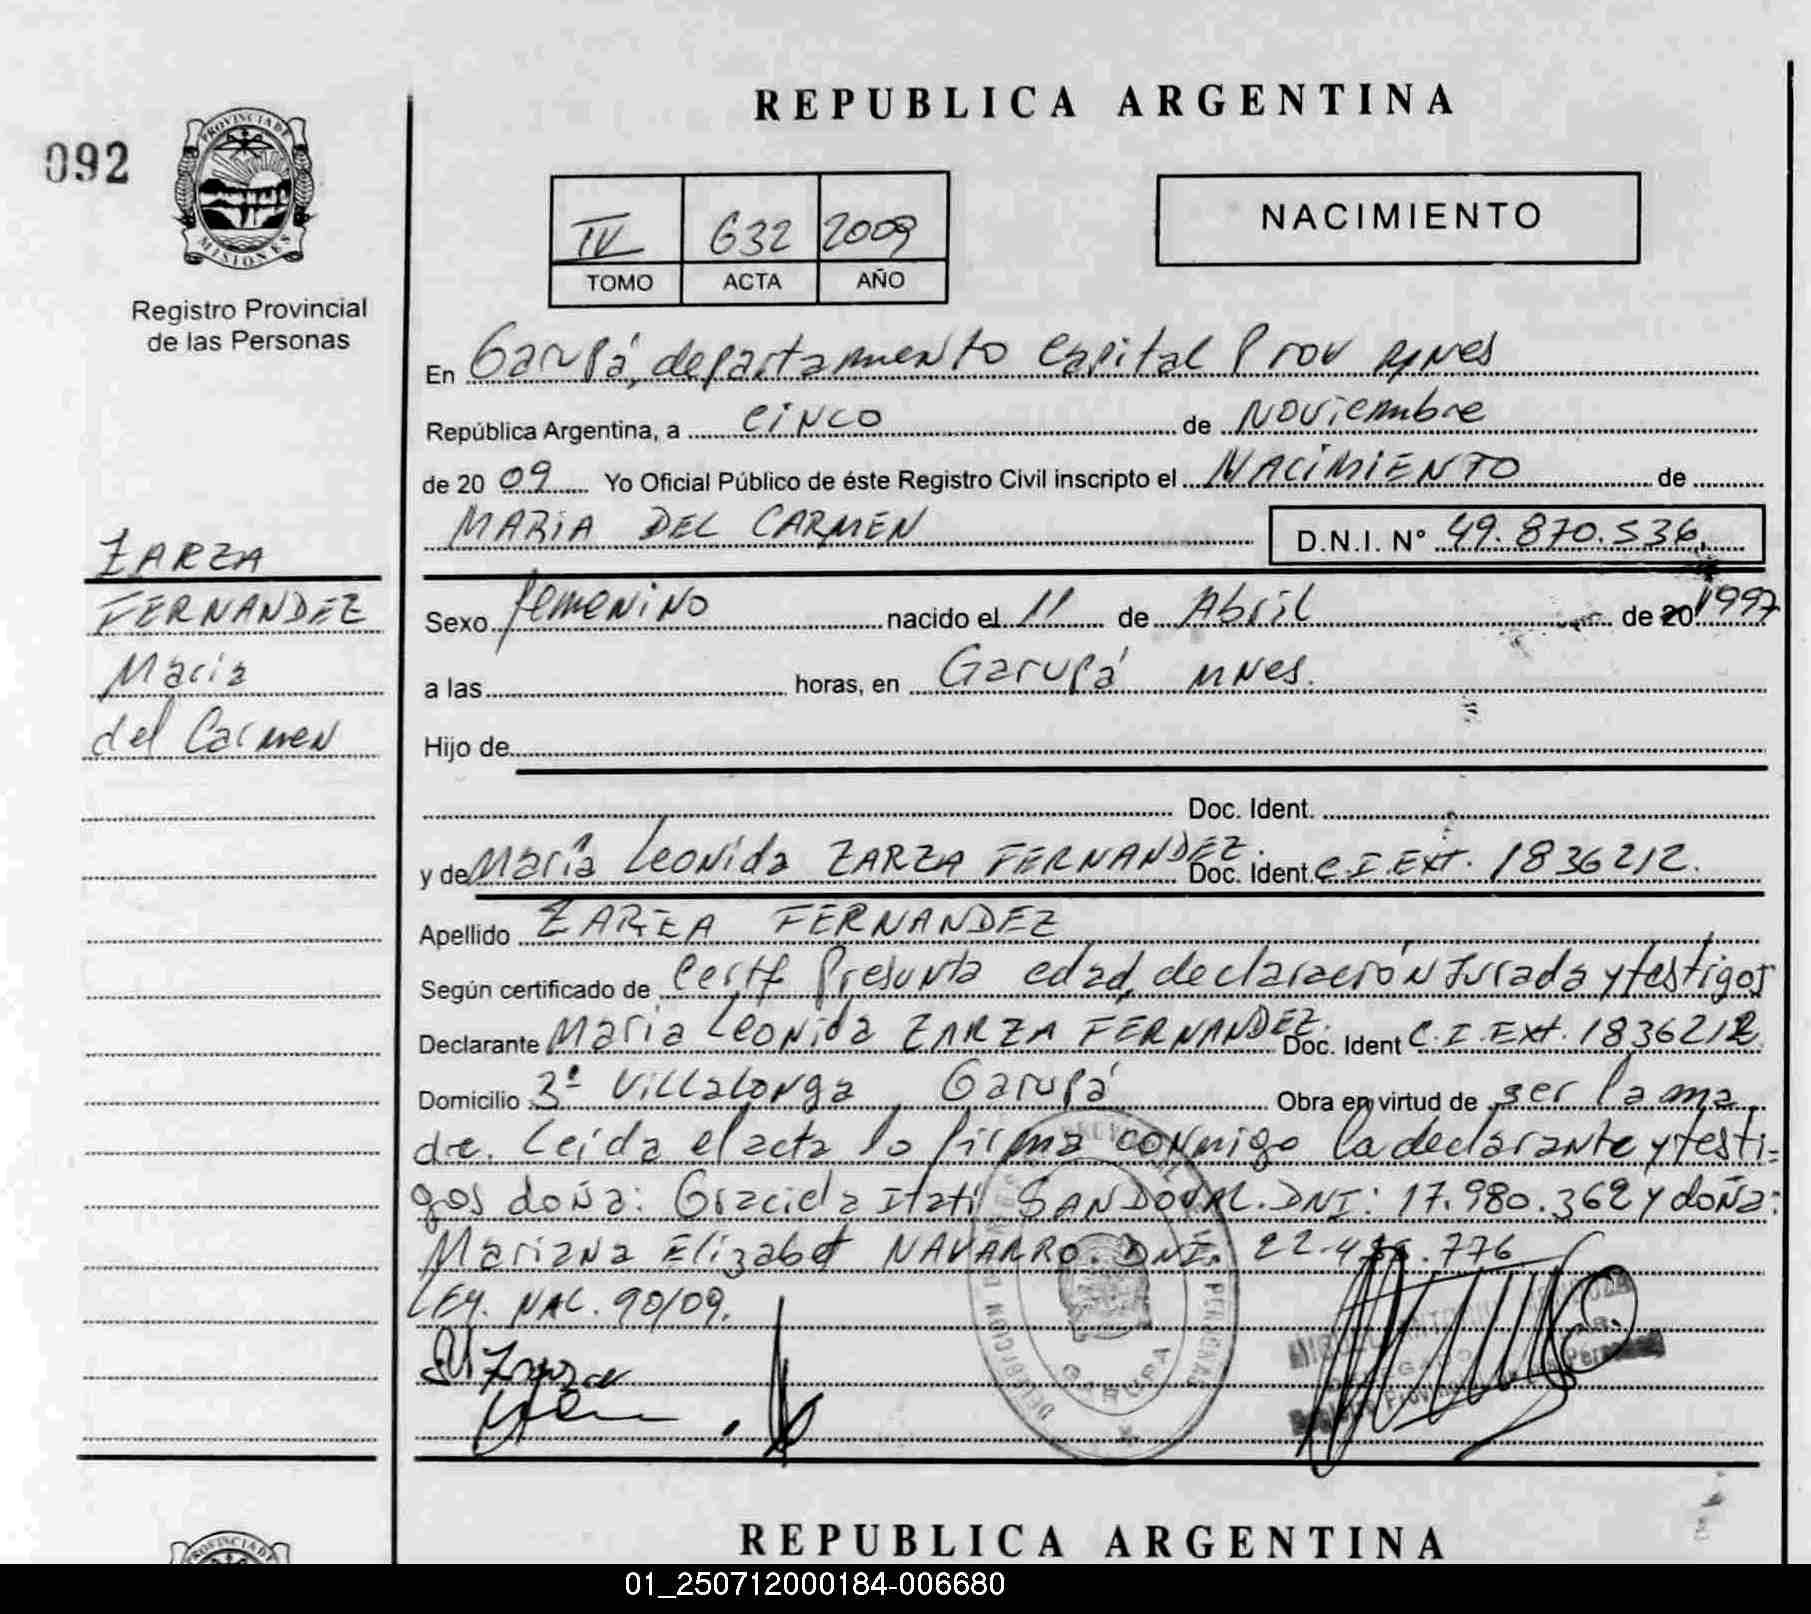 REPUBLICA ARGENTINA
092
PROVINCIA DE
MISIONES
Registro Provincial
de las Personas
NACIMIENTO
IV 632 2009
TOMO ACTA AÑO
En Garupá, departamento Capital Prov mnes
República Argentina, a cinco de Noviembre
de 20 09 Yo Oficial Público de éste Registro Civil inscripto el NACIMIENTO de
MARIA DEL CARMEN D.N.I. N° 49.870.536.
ZARZA
FERNANDEZ
Maria
del Carmen
Sexo femenino nacido el 11 de Abril de 20 1997
a las horas, en Garupá mnes.
Hijo de
Doc. Ident.
y de María Leonida ZARZA FERNANDEZ. Doc. Ident. C.I. Ext. 1836212.
Apellido ZARZA FERNANDEZ
Según certificado de Certf Presunta edad, declaración Jurada y testigos
Declarante Maria Leonida ZARZA FERNANDEZ. Doc. Ident C.I. Ext. 1836212
Domicilio 3ª Villalonga Garupá Obra en virtud de ser la ma
dre. Leida el acta la firma conmigo la declarante y testi=
gos doña: Graciela Itati SANDOVAL. DNI: 17.980.362 y doña:
Mariana Elizabet NAVARRO. DNI: 776
LEY. NAC. 90/09.
GARUPA
REPUBLICA ARGENTINA
01_250712000184-006680